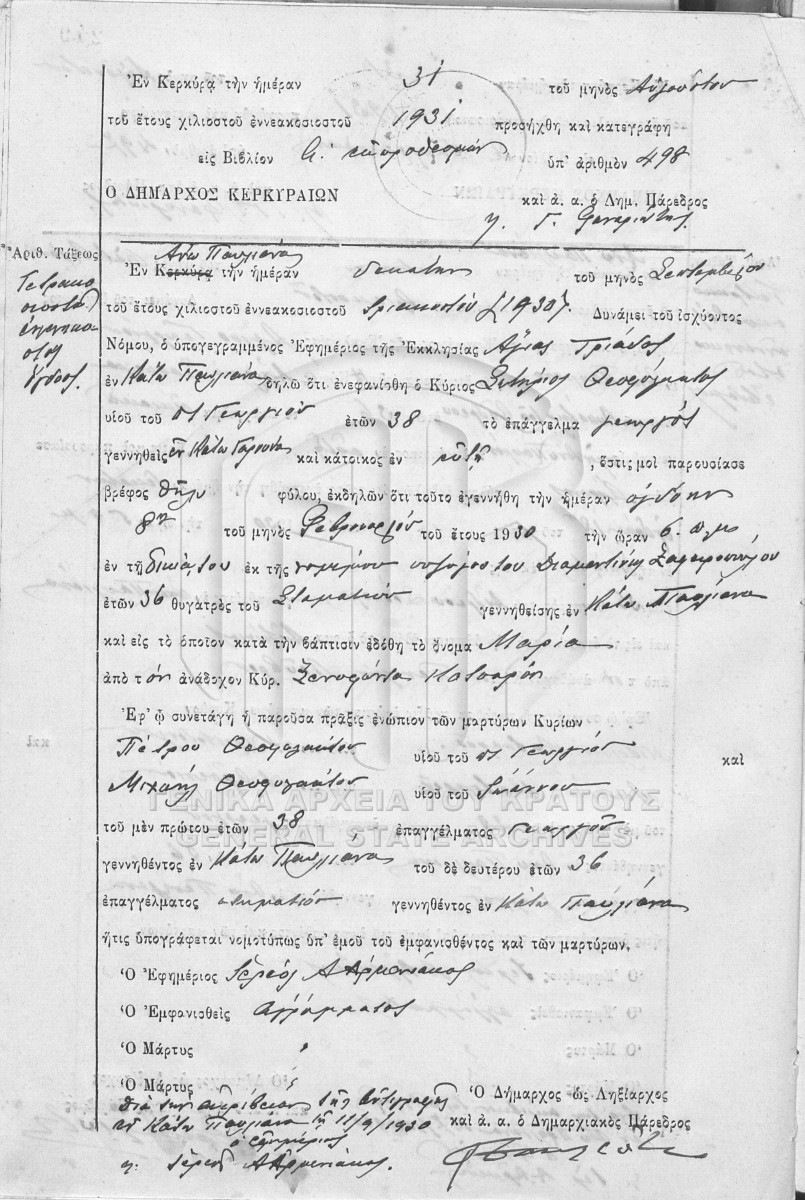 Ἐν Κερκύρᾳ τὴν ἡμέραν 31 τοῦ μηνὸς Αὐγούστου
τοῦ ἔτους χιλιοστοῦ ἐννεακοσιοστοῦ 1931 προσήχθη καὶ κατεγράφη
εἰς Βιβλίον ὑπ' ἀριθμὸν 498
Ο ΔΗΜΑΡΧΟΣ ΚΕΡΚΥΡΑΙΩΝ
καὶ ἀ. α. ὁ Δημ. Πάρεδρος
Γ.
Ἀριθ. Τάξεως
Τετρακο
σιοστὸν
ἐνενηκο
στὸν
ὄγδοος.
Ἄνω Παυλιάνα
Ἐν Κερκύρᾳ τὴν ἡμέραν δεκάτην τοῦ μηνὸς Σεπτεμβρίου
τοῦ ἔτους χιλιοστοῦ ἐννεακοσιοστοῦ τριακοστοῦ (1930). Δυνάμει τοῦ ἰσχύοντος
Νόμου, ὁ ὑπογεγραμμένος Ἐφημέριος τῆς Ἐκκλησίας Ἁγίας Τριάδος
ἐν Κάτω Παυλιάνα δηλῶ ὅτι ἐνεφανίσθη ὁ Κύριος Σωτήριος Θεοφύλακτος
υἱοῦ τοῦ Γεωργίου ἐτῶν 38 τὸ ἐπάγγελμα γεωργὸς
γεννηθεὶς ἐν Κάτω Γαρούνα καὶ κάτοικος ἐν , ὅστις μοὶ παρουσίασε
βρέφος θῆλυ φύλου, ἐκδηλῶν ὅτι τοῦτο ἐγεννήθη τὴν ἡμέραν ὀγδόην
8ην τοῦ μηνὸς Φεβρουαρίου τοῦ ἔτους 1930 τὴν ὥραν 6
ἐν τῇ οἰκίᾳ του ἐκ τῆς νομίμου συζύγου του Διαμαντίνης
ἐτῶν 36 θυγατρὸς τοῦ Σταματίου γεννηθείσης ἐν Κάτω Παυλιάνα
καὶ εἰς τὸ ὁποῖον κατὰ τὴν βάπτισιν ἐδόθη τὸ ὄνομα Μαρία
ἀπὸ τὸν ἀνάδοχον Κύρ. Ξενοφῶντα Κατσαρὸν
Ἐφ' ᾧ συνετάγη ἡ παροῦσα πρᾶξις ἐνώπιον τῶν μαρτύρων Κυρίων
Πέτρου Θεοφυλάκτου υἱοῦ τοῦ Γεωργίου καὶ
Μιχαὴλ Θεοφυλάκτου υἱοῦ τοῦ Ἰωάννου
ΓΕΝΙΚΑ ΑΡΧΕΙΑ ΤΟΥ ΚΡΑΤΟΥΣ
τοῦ μὲν πρώτου ἐτῶν 38 ἐπαγγέλματος γεωργοῦ
GENERAL STATE ARCHIVES
γεννηθέντος ἐν Κάτω Παυλιάνα τοῦ δὲ δευτέρου ἐτῶν 36
ἐπαγγέλματος γεννηθέντος ἐν Κάτω Παυλιάνα
ἥτις ὑπογράφεται νομοτύπως ὑπ' ἐμοῦ τοῦ ἐμφανισθέντος καὶ τῶν μαρτύρων.
Ὁ Ἐφημέριος Ἱερεὺς Α Ἀρμενιάκος
Ὁ Ἐμφανισθεὶς ἀγράμματος
Ὁ Μάρτυς
Ὁ Μάρτυς
Διὰ τὴν ἀκρίβειαν τῆς ἀντιγραφῆς
ἐν Κάτω Παυλιάνα τῇ 11/9/1930
ὁ ἐφημέριος
Ἱερεὺς Α Ἀρμενιάκος.
Ὁ Δήμαρχος ὡς Ληξίαρχος
καὶ ἀ. α. ὁ Δημαρχιακὸς Πάρεδρος